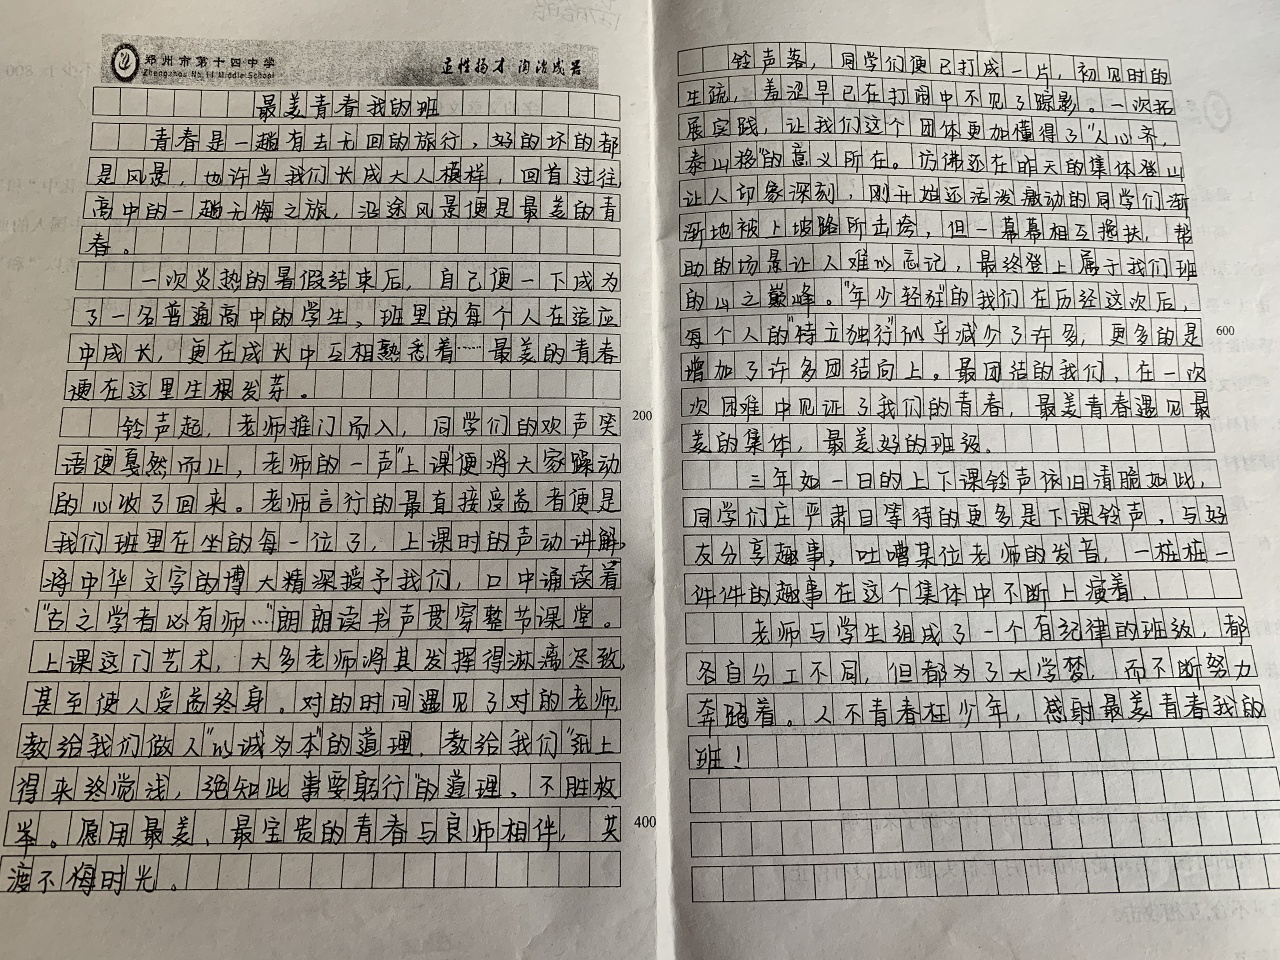 郑州市第十四中学
Zhengzhou No.14 Middle School
正性扬才 陶冶成器
最美青春我的班
青春是一趟有去无回的旅行，好的坏的都
是风景，也许当我们长成大人模样，回首过往
高中的一趟无悔之旅，沿途风景便是最美的青
春。
一次炎热的暑假结束后，自己便一下成为
了一名普通高中的学生，班里的每个人在适应
中成长，更在成长中互相熟悉着……最美的青春
便在这里生根发芽。
铃声起，老师推门而入，同学们的欢声笑
200
语便戛然而止，老师的一声"上课"便将大家躁动
的心收了回来。老师言行的最直接受益者便是
我们班里在坐的每一位了，上课时的声动讲解，
将中华文字的博大精深授予我们，口中诵读着
"古之学者必有师…"朗朗读书声贯穿整节课堂。
上课这门艺术，大多老师将其发挥得淋漓尽致，
甚至使人受益终身。对的时间遇见了对的老师
教给我们做人"以诚为本"的道理，教给我们"纸上
得来终觉浅，绝知此事要躬行"的道理，不胜枚
举。愿用最美、最宝贵的青春与良师相伴，共
400
渡不悔时光。
铃声落，同学们便已打成一片，初见时的
生疏，羞涩早已在打闹中不见了踪影。一次拓
展实践，让我们这个团体更加懂得了"人心齐，
泰山移"的意义所在。仿佛还在昨天的集体登山
让人印象深刻，刚开始还活泼激动的同学们渐
渐地被上坡路所击垮，但一幕幕相互搀扶，帮
助的场景让人难以忘记，最终登上属于我们班
的山之巅峰。"年少轻狂"的我们在历经这次后，
每个人的"特立独行"似乎减少了许多，更多的是
600
增加了许多团结向上。最团结的我们，在一次
次困难中见证了我们的青春，最美青春遇见最
美的集体，最美好的班级。
三年如一日的上下课铃声依旧清脆如此，
同学们庄严肃目等待的更多是下课铃声，与好
友分享趣事，吐嘈某位老师的发音，一桩桩一
件件的趣事在这个集体中不断上演着。
老师与学生组成了一个有纪律的班级，都
各自分工不同，但都为了大学梦，而不断努力
奔跑着。人不青春枉少年，感谢最美青春我的
班！